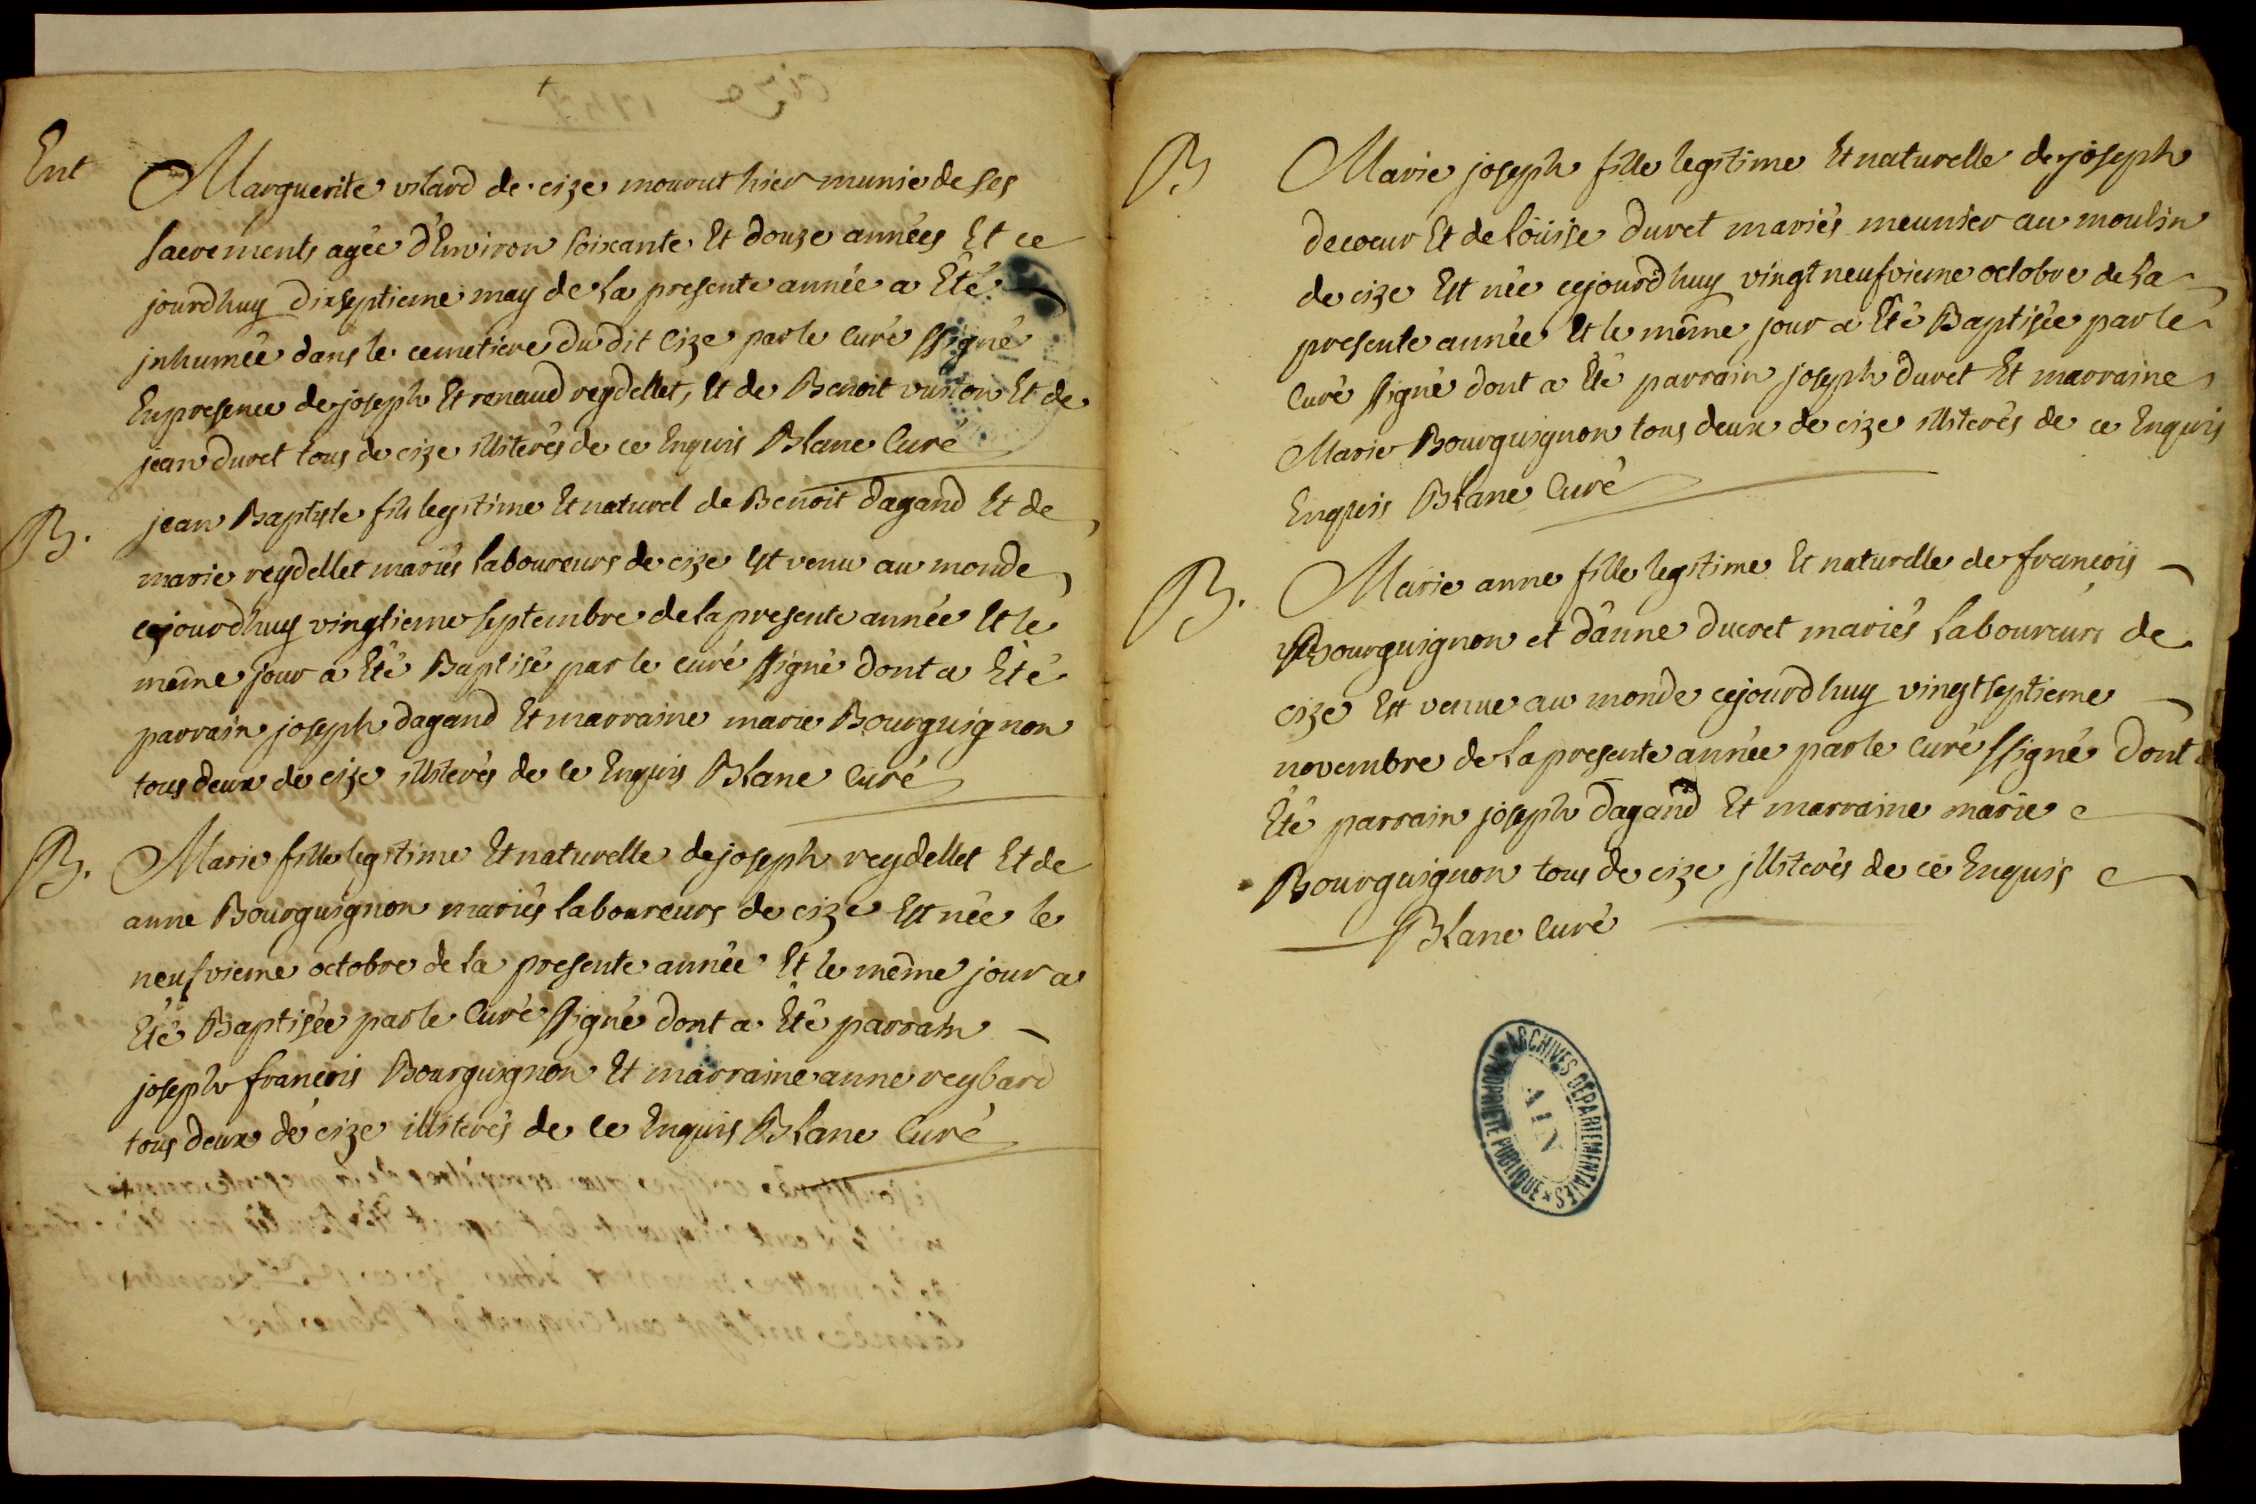 Ent
Marguerite vilard de cize mourut hier munie de ses
sacrements agée d'Environ soixante Et douze années Et ce
jourdhuy dixseptieme may de la presente année a Eté
jnhumée dans le cemetiere du dit Cize par le Curé ssigné
En presence de joseph Et renaud reydellet, Et de Benoit Et de
jean duret tous de cize illiterés de ce Enquis Blanc Curé
B.
jean Baptiste fils legitime Et naturel de Benoit dagand Et de
marie reydellet mariés laboureurs de cize Est venu au monde
cejourdhuy vingtieme septembre de la presente année Et le
même jour a Eté Baptisé par le curé ssigné dont a Eté
parrain joseph dagand Et marraine marie Bourguignon
tous deux de cize illiterés de ce Enquis Blanc Curé
B.
Marie fille legitime Et naturelle de joseph reydellet Et de
anne Bourguignon mariés laboureurs de cize Est née le
neufvieme octobre de la presente année Et le même jour a
Eté Baptisée par le Curé ssigné dont a Eté parrain
joseph francois Bourguignon Et marraine anne reybard
tous deux de cize illiterés de ce Enquis Blanc Curé
B
Marie joseph fille legitime Et naturelle de joseph
decoeur Et de Loüise duret mariés meunier au moulin
de cize Est née cejourdhuy vingt neufvieme octobre de la
presente année Et le même jour a Eté Baptisée par le
Curé ssigné dont a Eté parrain joseph duret Et marraine
Marie Bourguignon tous deux de cize illiterés de ce Enquis
Enquis Blanc Curé
B.
Marie anne fille legitime Et naturelle de francois
Bourguignon et d'anne ducret mariés laboureurs de
cize Est venue au monde cejourdhuy vingt septieme
novembre de la presente année par le Curé ssigné dont a
Eté parrain joseph dagand Et marraine marie
Bourguignon tous de cize jlliterés de ce Enquis
Blanc Curé
ARCHIVES DÉPARTEMENTALES
AIN
PROPRIÉTÉ PUBLIQUE